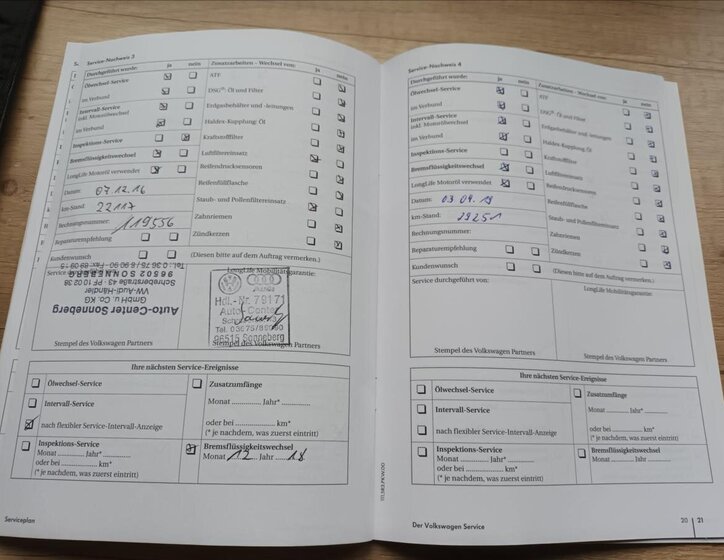 Service-Nachweis 3
Durchgeführt wurde: ja nein
Ölwechsel-Service
im Verbund
Intervall-Service
inkl. Motorölwechsel
im Verbund
Inspektions-Service
Bremsflüssigkeitswechsel
LongLife Motoröl verwendet
Datum: 07.12.16
km-Stand: 22117
Rechnungsnummer: 119556
Reparaturempfehlung
Kundenwunsch
Zusatzarbeiten - Wechsel von: ja nein
ATF
DSG®: Öl und Filter
Erdgasbehälter und -leitungen
Haldex-Kupplung: Öl
Kraftstofffilter
Luftfiltereinsatz
Reifendrucksensoren
Reifenfüllflasche
Staub- und Pollenfiltereinsatz
Zahnriemen
Zündkerzen
(Diesen bitte auf dem Auftrag vermerken.)
Service
LongLife Mobilitätsgarantie:
Auto-Center Sonneberg
GmbH u. Co. KG
VW-Audi-Händler
Schäferstraße 43 · PF 10 02 38
96502 SONNEBERG
Tel.: 0 36 75 / 8 90 90 - Fax: 89 09 15
Hdl.-Nr. 79171
Auto-Center
Tel. 03675/89090
96515 Sonneberg
Stempel des Volkswagen Partners
Stempel des Volkswagen Partners
Ihre nächsten Service-Ereignisse
Ölwechsel-Service
Intervall-Service
nach flexibler Service-Intervall-Anzeige
Inspektions-Service
Monat .............. Jahr* ..............
oder bei .............. km*
(* je nachdem, was zuerst eintritt)
Zusatzumfänge
Monat .............. Jahr* ..............
oder bei .............. km*
(* je nachdem, was zuerst eintritt)
Bremsflüssigkeitswechsel
Monat 12 Jahr 18
Serviceplan
Service-Nachweis 4
Durchgeführt wurde: ja nein
Ölwechsel-Service
im Verbund
Intervall-Service
inkl. Motorölwechsel
im Verbund
Inspektions-Service
Bremsflüssigkeitswechsel
LongLife Motoröl verwendet
Datum: 03.09.19
km-Stand: 39251
Rechnungsnummer:
Reparaturempfehlung
Kundenwunsch
Zusatzarbeiten - Wechsel von: ja nein
ATF
DSG®: Öl und Filter
Erdgasbehälter und -leitungen
Haldex-Kupplung: Öl
Kraftstofffilter
Luftfiltereinsatz
Reifendrucksensoren
Reifenfüllflasche
Staub- und Pollenfiltereinsatz
Zahnriemen
Zündkerzen
(Diesen bitte auf dem Auftrag vermerken.)
Service durchgeführt von:
LongLife Mobilitätsgarantie:
Stempel des Volkswagen Partners
Stempel des Volkswagen Partners
Ihre nächsten Service-Ereignisse
Ölwechsel-Service
Intervall-Service
nach flexibler Service-Intervall-Anzeige
Inspektions-Service
Monat .............. Jahr* ..............
oder bei .............. km*
(* je nachdem, was zuerst eintritt)
Zusatzumfänge
Monat .............. Jahr* ..............
oder bei .............. km*
(* je nachdem, was zuerst eintritt)
Bremsflüssigkeitswechsel
Monat .............. Jahr ..............
Der Volkswagen Service
20 21